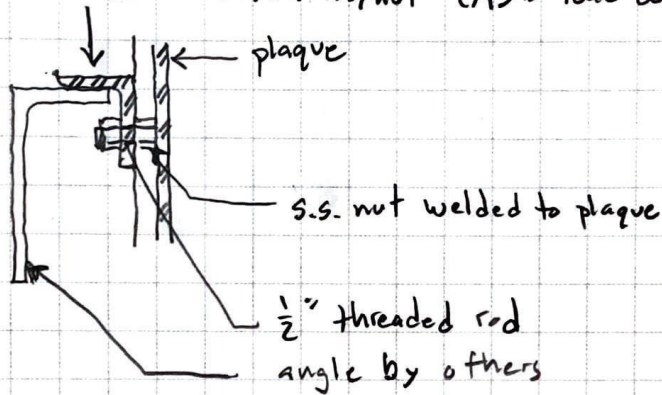 plaque
s.s. nut welded to plaque
½" threaded rod
angle by others